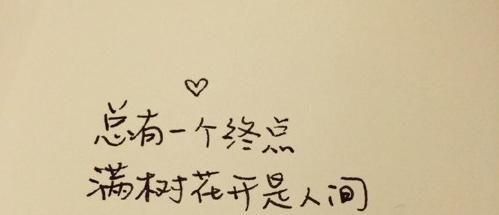 总有一个终点
满树花开是人间